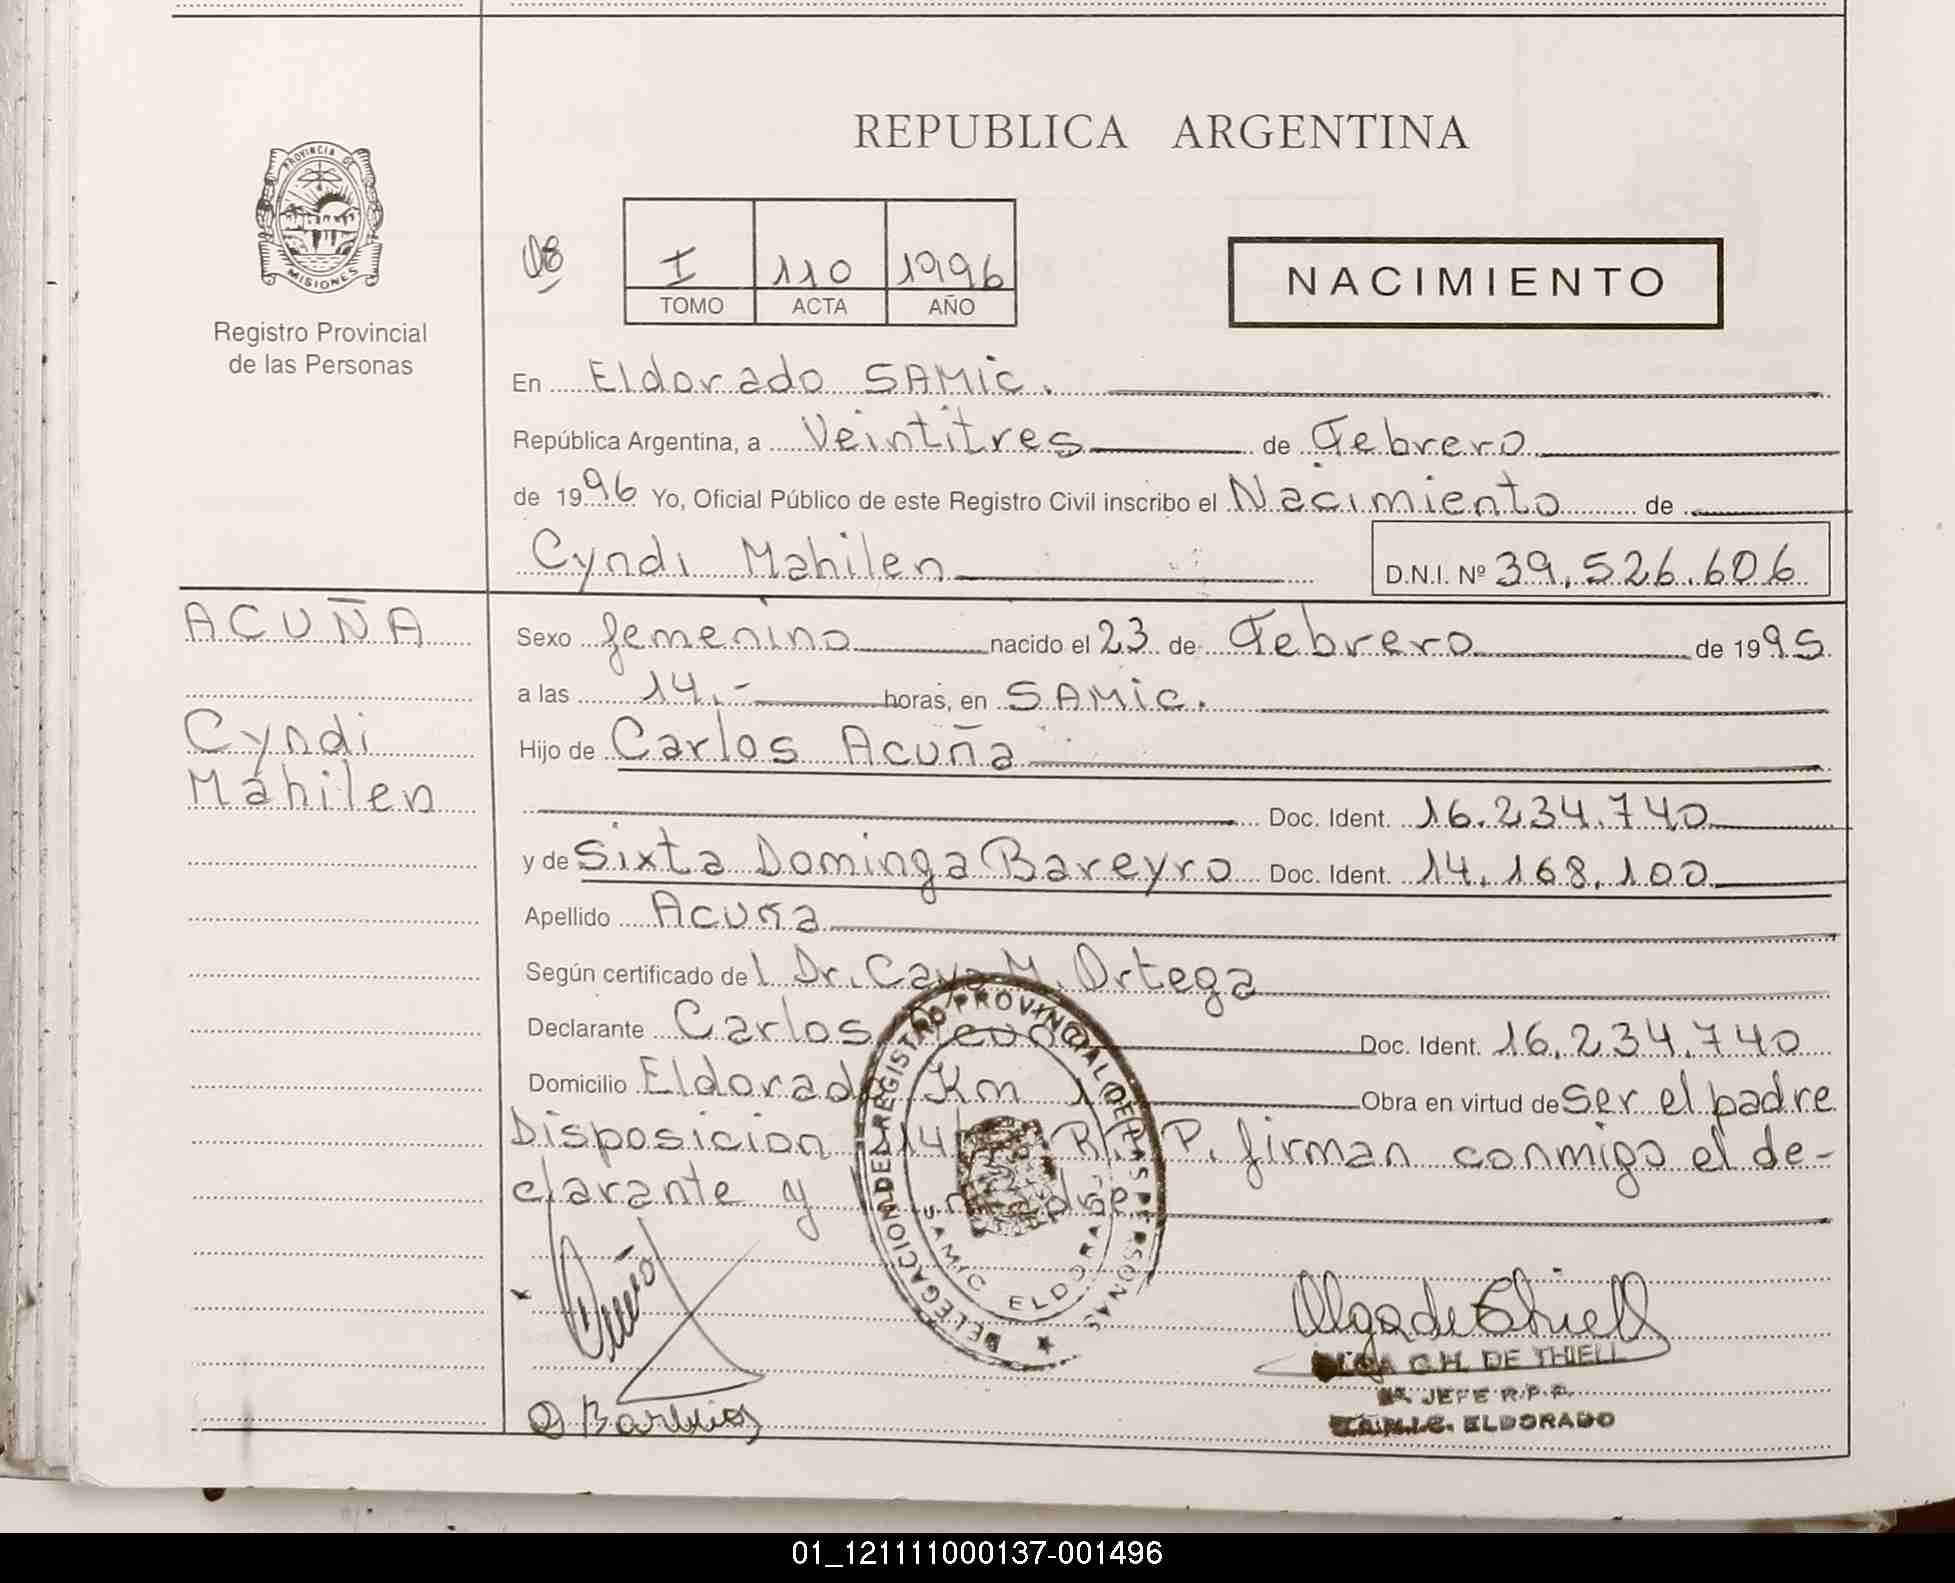 REPUBLICA ARGENTINA
PROVINCIA DE
MISIONES
Registro Provincial
de las Personas
I 110 1996
TOMO ACTA AÑO
NACIMIENTO
En Eldorado SAMIC.
República Argentina, a Veintitres de Febrero
de 1996 Yo, Oficial Público de este Registro Civil inscribo el Nacimiento de
Cyndi Mahilen D.N.I. Nº 39.526.606
ACUÑA
Cyndi
Mahilen
Sexo femenino nacido el 23 de Febrero de 1995
a las 14.- horas, en SAMIC.
Hijo de Carlos Acuña
Doc. Ident. 16.234.740
y de Sixta Dominga Bareyro Doc. Ident. 14.168.100
Apellido Acuña
Según certificado del Dr. M. Ortega
Declarante Carlos Doc. Ident. 16.234.740
Domicilio Eldorado Km 1 Obra en virtud de ser el padre
Disposicion 114 R.P.P. firman conmigo el de-
clarante y madre
DELEGACION DEL REGISTRO PROVINCIAL DE LAS PERSONAS
SAMIC ELDORADO
Olga de Thiell
OLGA C.H. DE THIELL
JEFE R.P.P.
S.A.M.I.C. ELDORADO
01_121111000137-001496